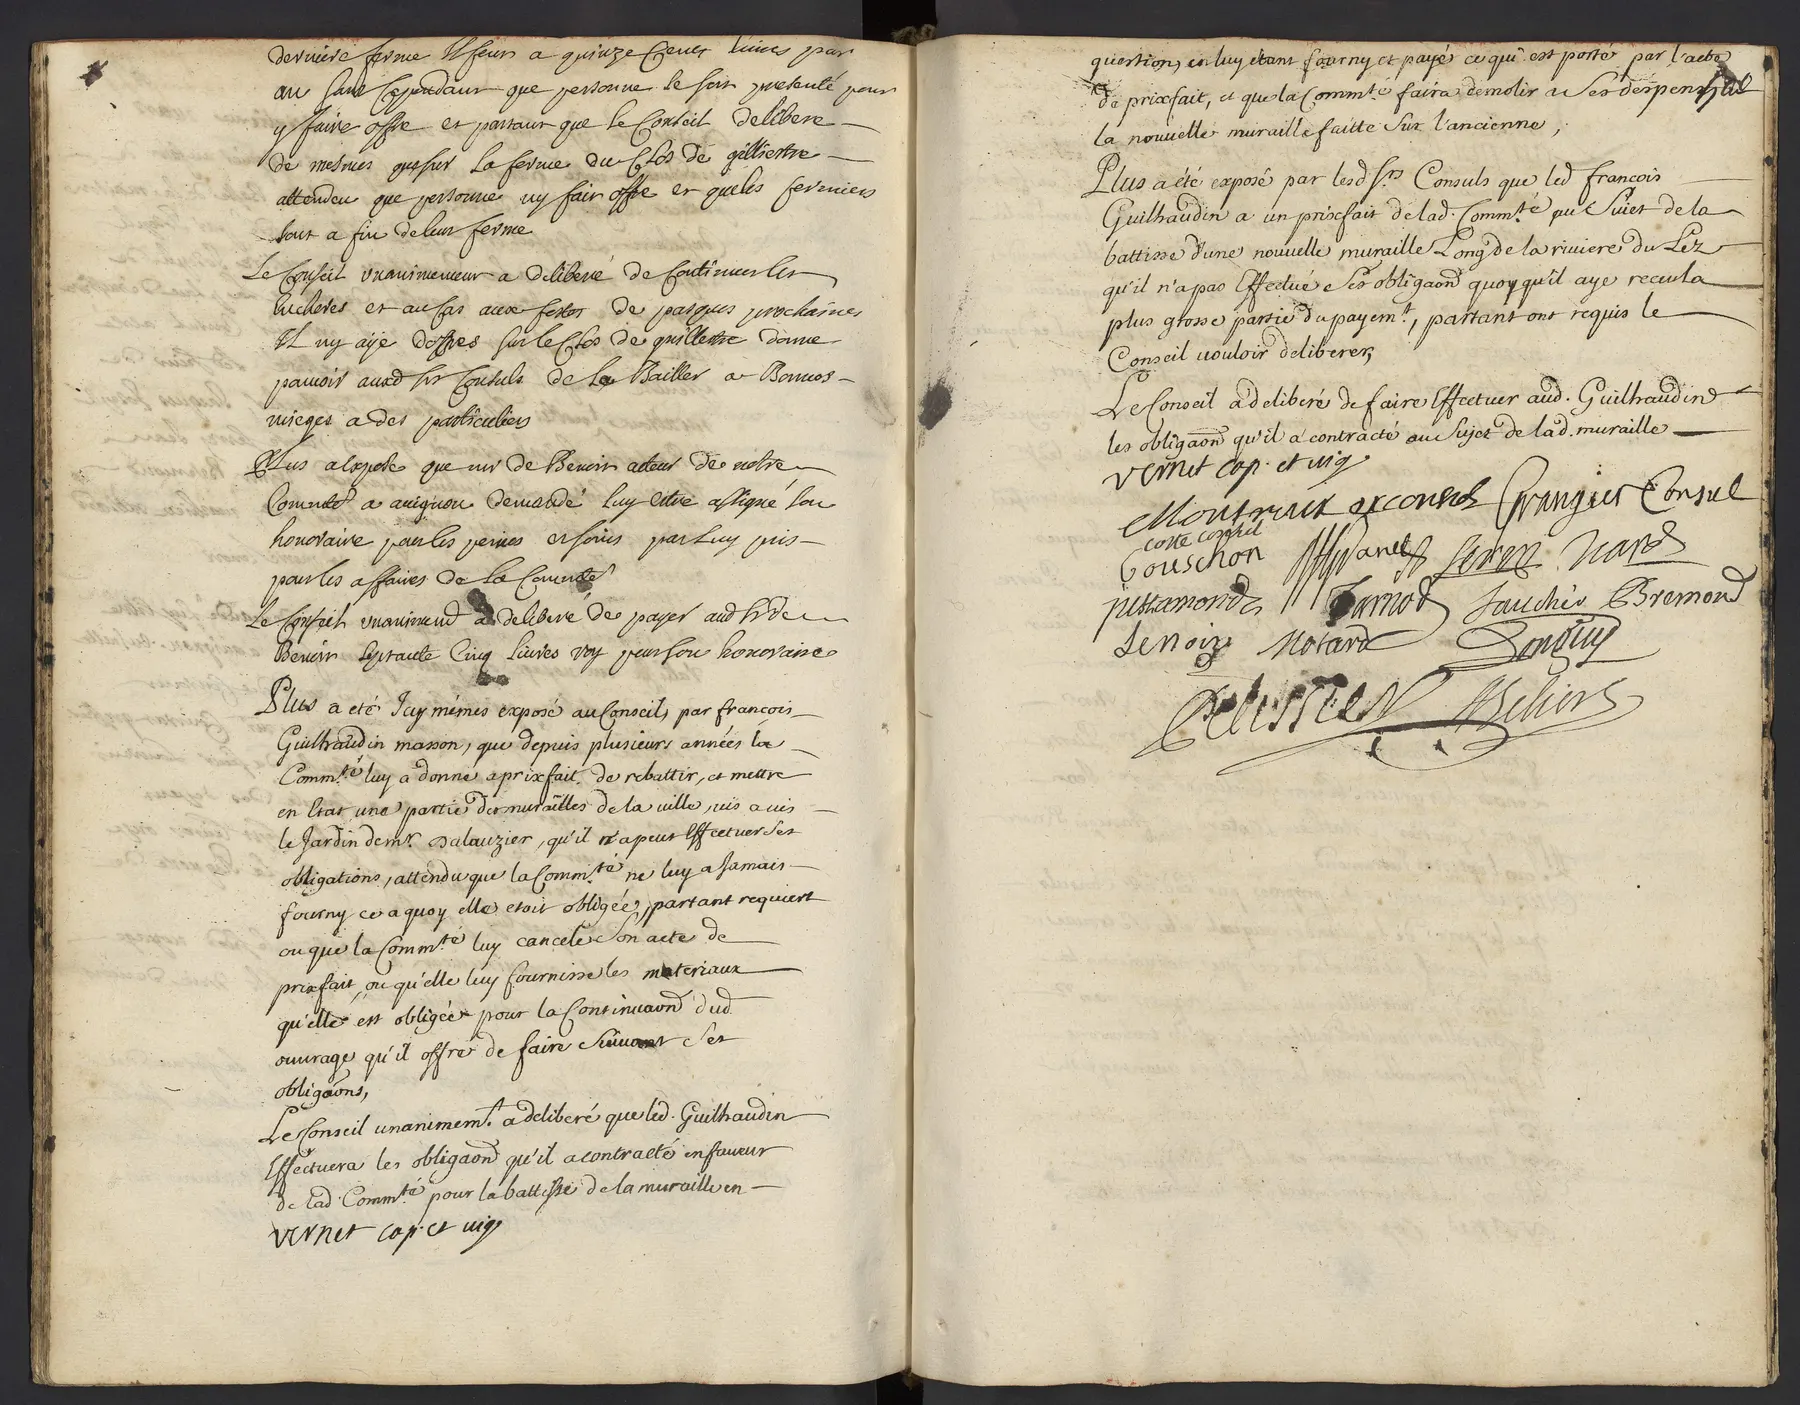 derniere ferme Il feus a quinze Cens livres par
an sans Cependant que personne se soit presenté pour
y faire offre et partant que le Conseil delibere
de mesmes que sur la ferme du Clos de gillestre
attendeu que personne ny fait offre et que les fermiers
sont a fin de leur ferme
Le Conseil unanimement a deliberé de Continuer les
Encheres et au Cas aux festes de pasques prochaines
Il ny aye doffres sur le Clos de guillestre donne
pauvoir auxd srs Consuls de le Bailler a
mieges a des particuliers
Plus a exposé que mr de Benoit acteur de notre
Commté a avignon demandé luy estre assigné son
honoraire pour les peines et soins par Luy pris
pour les affaires de La Commté
Le Conseil unanimemt a deliberé de payer aud sr de
Benoit septante Cinq Livres Roy pour son honoraire
Plus a eté Icy mémes exposé au Conseil, par francois
Guilhaudin masson, que depuis plusieurs années la
Comm.té luy a donné a prixfait de rebattir, et mettre
en Etat une partie des murailles de la ville, vis a vis
le Jardin de mr. Salauzier, qu'il n'a peut Effectuer ses
obligations, attendu que la Comm.té ne luy a Jamais
fourny ce a quoy elle etoit obligée, partant requiert
ou que la Comm.té luy cancele son acte de
prixfait, ou qu'elle luy fournisse les materiaux
qu'elle est obligée pour la Continuaon dud.
ouvrage qu'il offre de faire suivant ses
obligaons,
Le Conseil unanimem.t a deliberé que led. Guilhaudin
Effectuera les obligaons qu'il a contracté en faveur
de lad. Comm.té pour la battisse de la muraille en
Vernet cap. et vig.
question, en luy etant fourny et payé ce qui est porté par l'acte
de prixfait, et que la Comm.té faira demolir a Ses depens
la nouvelle muraille faitte Sur l'ancienne,
Plus a été exposé par lesd. Srs Consuls que led francois
Guilhaudin a un prixfait de lad. Comm.té au Sujet de la
battisse d'une nouvelle muraille Long de la riviere du Lez
qu'il n'a pas Effectué Ses obligaons quoy qu'il aye receu la
plus grosse partie du payem.t, partant ont requis le
Conseil vouloir deliberer,
Le Conseil a deliberé de faire Effectuer aud. Guilhaudin
les obligaons qu'il a contracté au Sujet de lad. muraille
Vernet cap. et vig.
exconsul Grangier Consul
coste consul
Bouschon Seren Icard
justamond Tarnod fauchér Bremond
Lenoir Notard
Pelissier